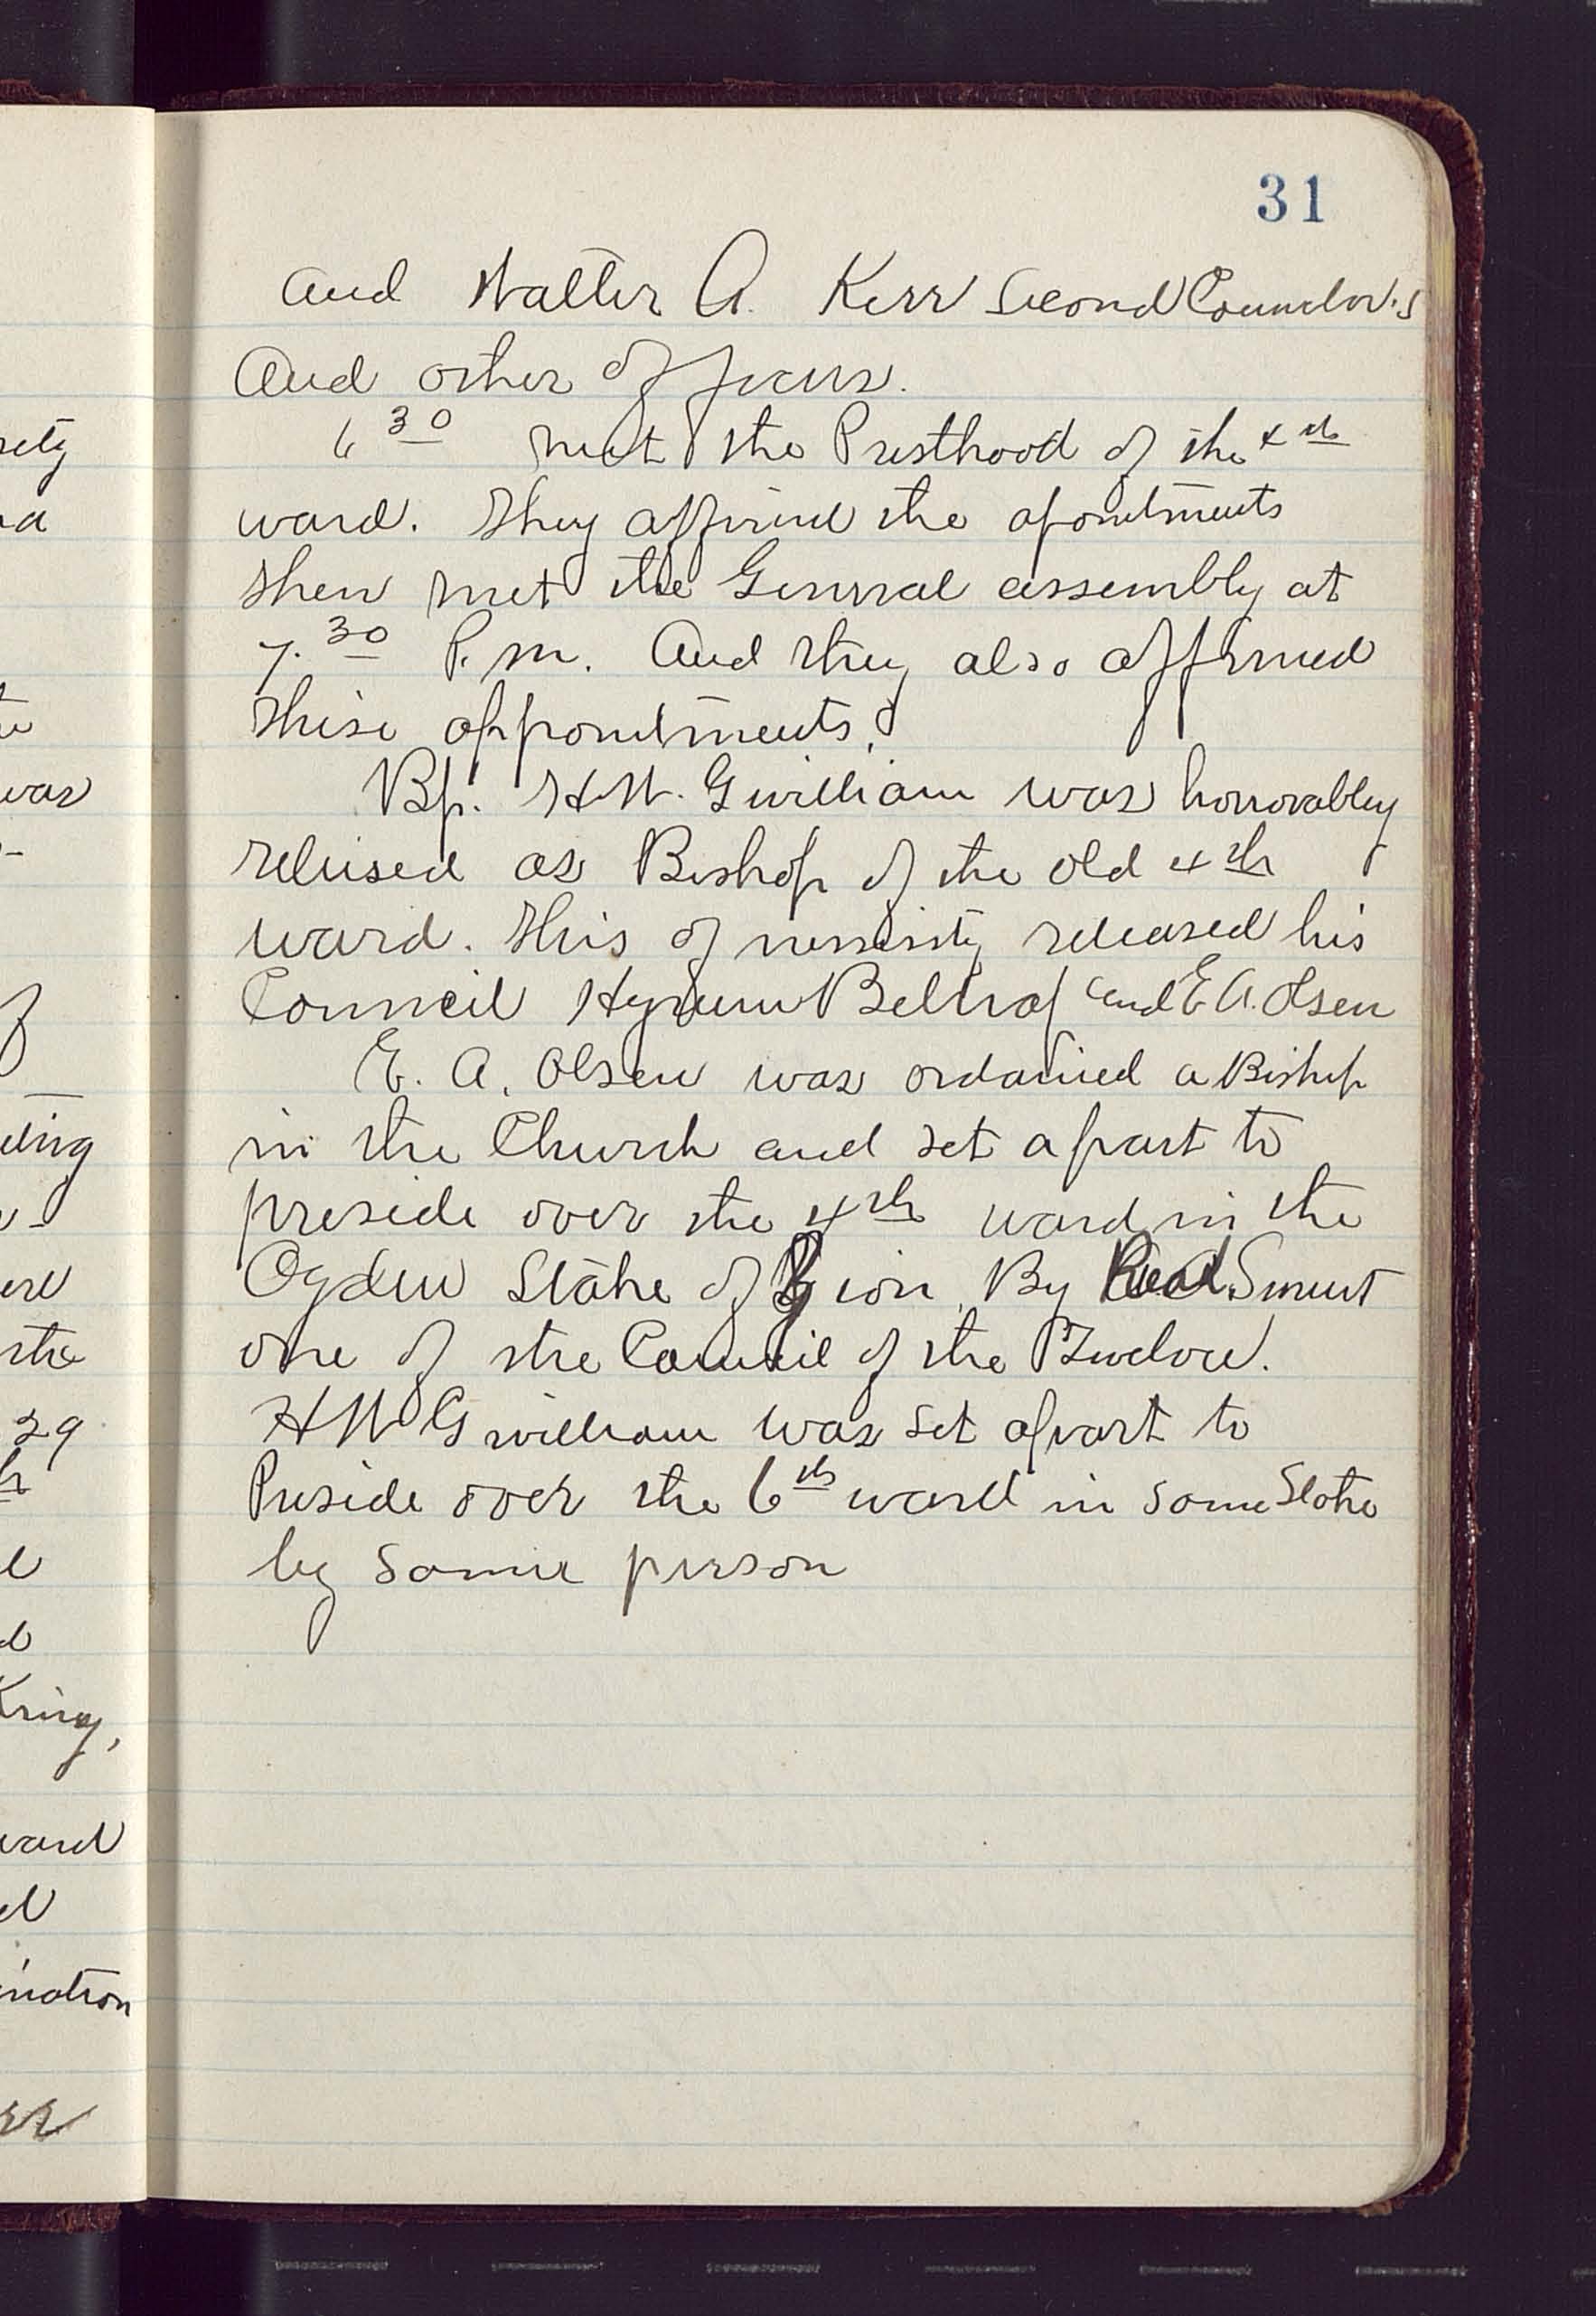 31
and Walter A. Kerr Second Councelor.s
And other officers.
6 30 met the Presthood of the 4th
ward. They affirmed the apointments
then met the General assembly at
7.30 P.m. And they also affirmed
these appointments.
Bp. H.W. Gwilliam was honorabley
relised as Bishop of the old 4th
ward. this of nessisity released his
Council Hyrum Belnap and E A. Olsen
E. A. Olsen was ordained a Bishop
in the Church and set apart to
preside over the 4th ward in the
Ogden Stake of Zion, By Reed Smoot
one of the Council of the Twelve.
H W Gwilliam was set apart to
Preside over the 6th ward in same Stake
by same person